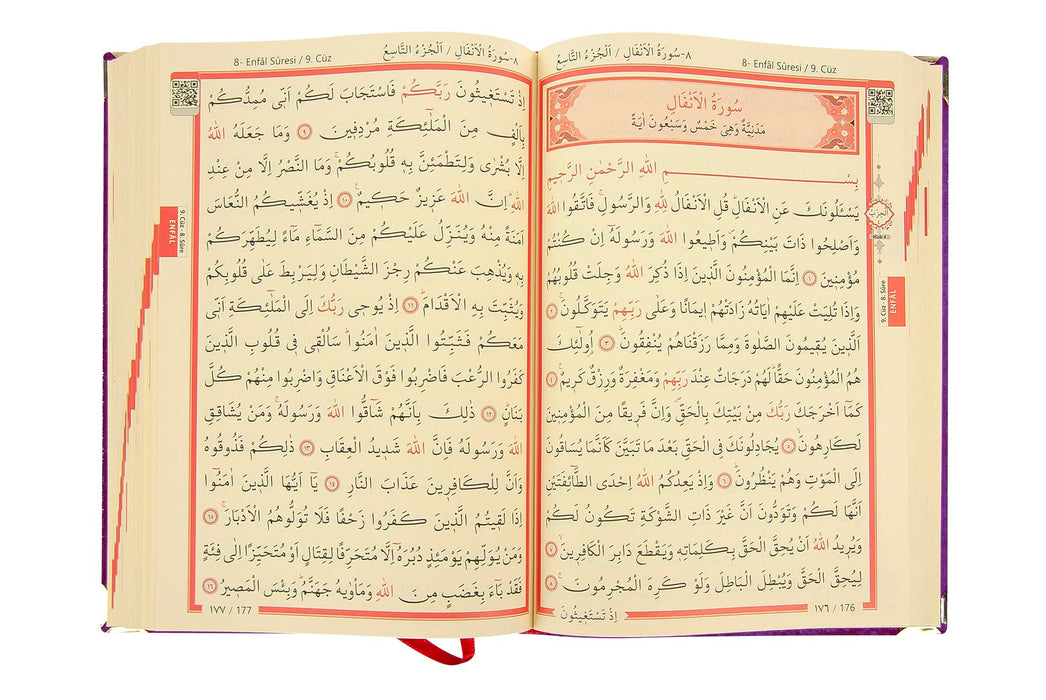 ٨-سُورَةُ الْاَنْفَالِ / اَلْجُزْءُ التَّاسِعُ
8- Enfâl Sûresi / 9. Cüz
سُورَةُ الْاَنْفَالِ
مَدَنِيَّةٌ وَهِىَ خَمْسٌ وَسَبْعُونَ اٰيَةً
بِسْمِ اللّٰهِ الرَّحْمٰنِ الرَّحٖيمِ
يَسْـَٔلُونَكَ عَنِ الْاَنْفَالِؕ قُلِ الْاَنْفَالُ لِلّٰهِ وَالرَّسُولِۚ فَاتَّقُوا اللّٰهَ
وَاَصْلِحُوا ذَاتَ بَيْنِكُمْࣕ وَاَطٖيعُوا اللّٰهَ وَرَسُولَهُٓ اِنْ كُنْتُمْ
مُؤْمِنٖينَ ﴿١﴾ اِنَّمَا الْمُؤْمِنُونَ الَّذٖينَ اِذَا ذُكِرَ اللّٰهُ وَجِلَتْ قُلُوبُهُمْ
وَاِذَا تُلِيَتْ عَلَيْهِمْ اٰيَاتُهُ زَادَتْهُمْ اٖيمَانًا وَعَلٰى رَبِّهِمْ يَتَوَكَّلُونَۚ ﴿٢﴾
اَلَّذٖينَ يُقٖيمُونَ الصَّلٰوةَ وَمِمَّا رَزَقْنَاهُمْ يُنْفِقُونَؕ ﴿٣﴾ اُو۬لٰٓئِكَ
هُمُ الْمُؤْمِنُونَ حَقًّاؕ لَهُمْ دَرَجَاتٌ عِنْدَ رَبِّهِمْ وَمَغْفِرَةٌ وَرِزْقٌ كَرٖيمٌۚ ﴿٤﴾
كَمَٓا اَخْرَجَكَ رَبُّكَ مِنْ بَيْتِكَ بِالْحَقِّࣕ وَاِنَّ فَرٖيقًا مِنَ الْمُؤْمِنٖينَ
لَكَارِهُونَۙ ﴿٥﴾ يُجَادِلُونَكَ فِى الْحَقِّ بَعْدَ مَا تَبَيَّنَ كَاَنَّمَا يُسَاقُونَ
اِلَى الْمَوْتِ وَهُمْ يَنْظُرُونَؕ ﴿٦﴾ وَاِذْ يَعِدُكُمُ اللّٰهُ اِحْدَى الطَّٓائِفَتَيْنِ
اَنَّهَا لَكُمْ وَتَوَدُّونَ اَنَّ غَيْرَ ذَاتِ الشَّوْكَةِ تَكُونُ لَكُمْ
وَيُرٖيدُ اللّٰهُ اَنْ يُحِقَّ الْحَقَّ بِكَلِمَاتِهٖ وَيَقْطَعَ دَابِرَ الْكَافِرٖينَۙ ﴿٧﴾
لِيُحِقَّ الْحَقَّ وَيُبْطِلَ الْبَاطِلَ وَلَوْ كَرِهَ الْمُجْرِمُونَۚ ﴿٨﴾
اِذْ تَسْتَغٖيثُونَ
١٧٦ / 176
9. Cüz · 8. Sûre
ENFÂL
٨-سُورَةُ الْاَنْفَالِ / اَلْجُزْءُ التَّاسِعُ
8- Enfâl Sûresi / 9. Cüz
اِذْ تَسْتَغٖيثُونَ رَبَّكُمْ فَاسْتَجَابَ لَكُمْ اَنّٖى مُمِدُّكُمْ
بِاَلْفٍ مِنَ الْمَلٰٓئِكَةِ مُرْدِفٖينَ ﴿٩﴾ وَمَا جَعَلَهُ اللّٰهُ
اِلَّا بُشْرٰى وَلِتَطْمَئِنَّ بِهٖ قُلُوبُكُمْۚ وَمَا النَّصْرُ اِلَّا مِنْ عِنْدِ
اللّٰهِؕ اِنَّ اللّٰهَ عَزٖيزٌ حَكٖيمٌ۟ ﴿١٠﴾ اِذْ يُغَشّٖيكُمُ النُّعَاسَ
اَمَنَةً مِنْهُ وَيُنَزِّلُ عَلَيْكُمْ مِنَ السَّمَٓاءِ مَٓاءً لِيُطَهِّرَكُمْ
بِهٖ وَيُذْهِبَ عَنْكُمْ رِجْزَ الشَّيْطَانِ وَلِيَرْبِطَ عَلٰى قُلُوبِكُمْ
وَيُثَبِّتَ بِهِ الْاَقْدَامَؕ ﴿١١﴾ اِذْ يُوحٖى رَبُّكَ اِلَى الْمَلٰٓئِكَةِ اَنّٖى
مَعَكُمْ فَثَبِّتُوا الَّذٖينَ اٰمَنُواؕ سَاُلْقٖى فٖى قُلُوبِ الَّذٖينَ
كَفَرُوا الرُّعْبَ فَاضْرِبُوا فَوْقَ الْاَعْنَاقِ وَاضْرِبُوا مِنْهُمْ كُلَّ
بَنَانٍؕ ﴿١٢﴾ ذٰلِكَ بِاَنَّهُمْ شَٓاقُّوا اللّٰهَ وَرَسُولَهُۚ وَمَنْ يُشَاقِقِ
اللّٰهَ وَرَسُولَهُ فَاِنَّ اللّٰهَ شَدٖيدُ الْعِقَابِ ﴿١٣﴾ ذٰلِكُمْ فَذُوقُوهُ
وَاَنَّ لِلْكَافِرٖينَ عَذَابَ النَّارِ ﴿١٤﴾ يَٓا اَيُّهَا الَّذٖينَ اٰمَنُٓوا
اِذَا لَقٖيتُمُ الَّذٖينَ كَفَرُوا زَحْفًا فَلَا تُوَلُّوهُمُ الْاَدْبَارَۚ ﴿١٥﴾
وَمَنْ يُوَلِّهِمْ يَوْمَئِذٍ دُبُرَهُٓ اِلَّا مُتَحَرِّفًا لِقِتَالٍ اَوْ مُتَحَيِّزًا اِلٰى فِئَةٍ
فَقَدْ بَٓاءَ بِغَضَبٍ مِنَ اللّٰهِ وَمَأْوٰيهُ جَهَنَّمُؕ وَبِئْسَ الْمَصٖيرُ ﴿١٦﴾
١٧٧ / 177
9. Cüz · 8. Sûre
ENFÂL